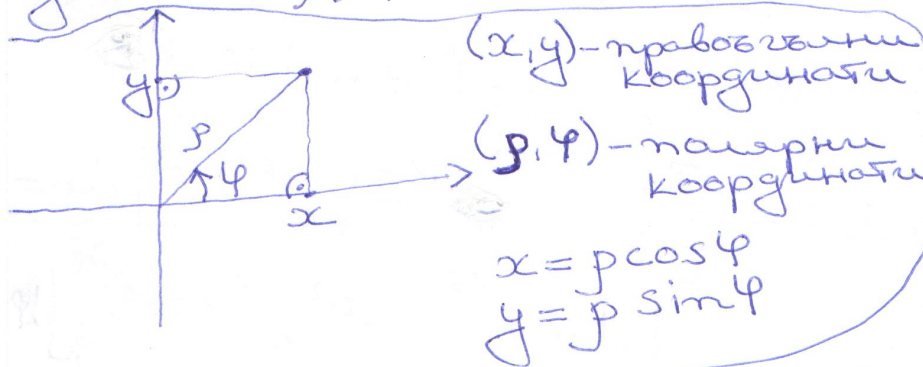 y
ρ
φ
x
(x,y)-правоъгълни
координати
(ρ,φ)-полярни
координати
x=ρcosφ
y=ρ sinφ